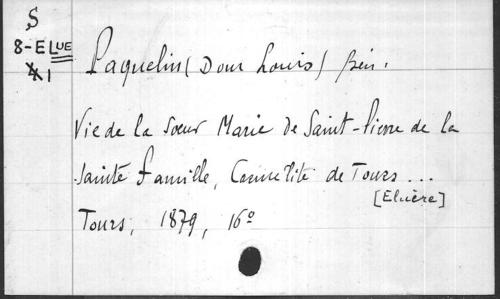 S
8-ELUE
1
Paquelin (Dom Louis)
Vie de la Soeur Marie de Saint-Pierre de la
Sainte famille, Carmelite de Tours...
[Eluère]
Tours, 1879, 16°